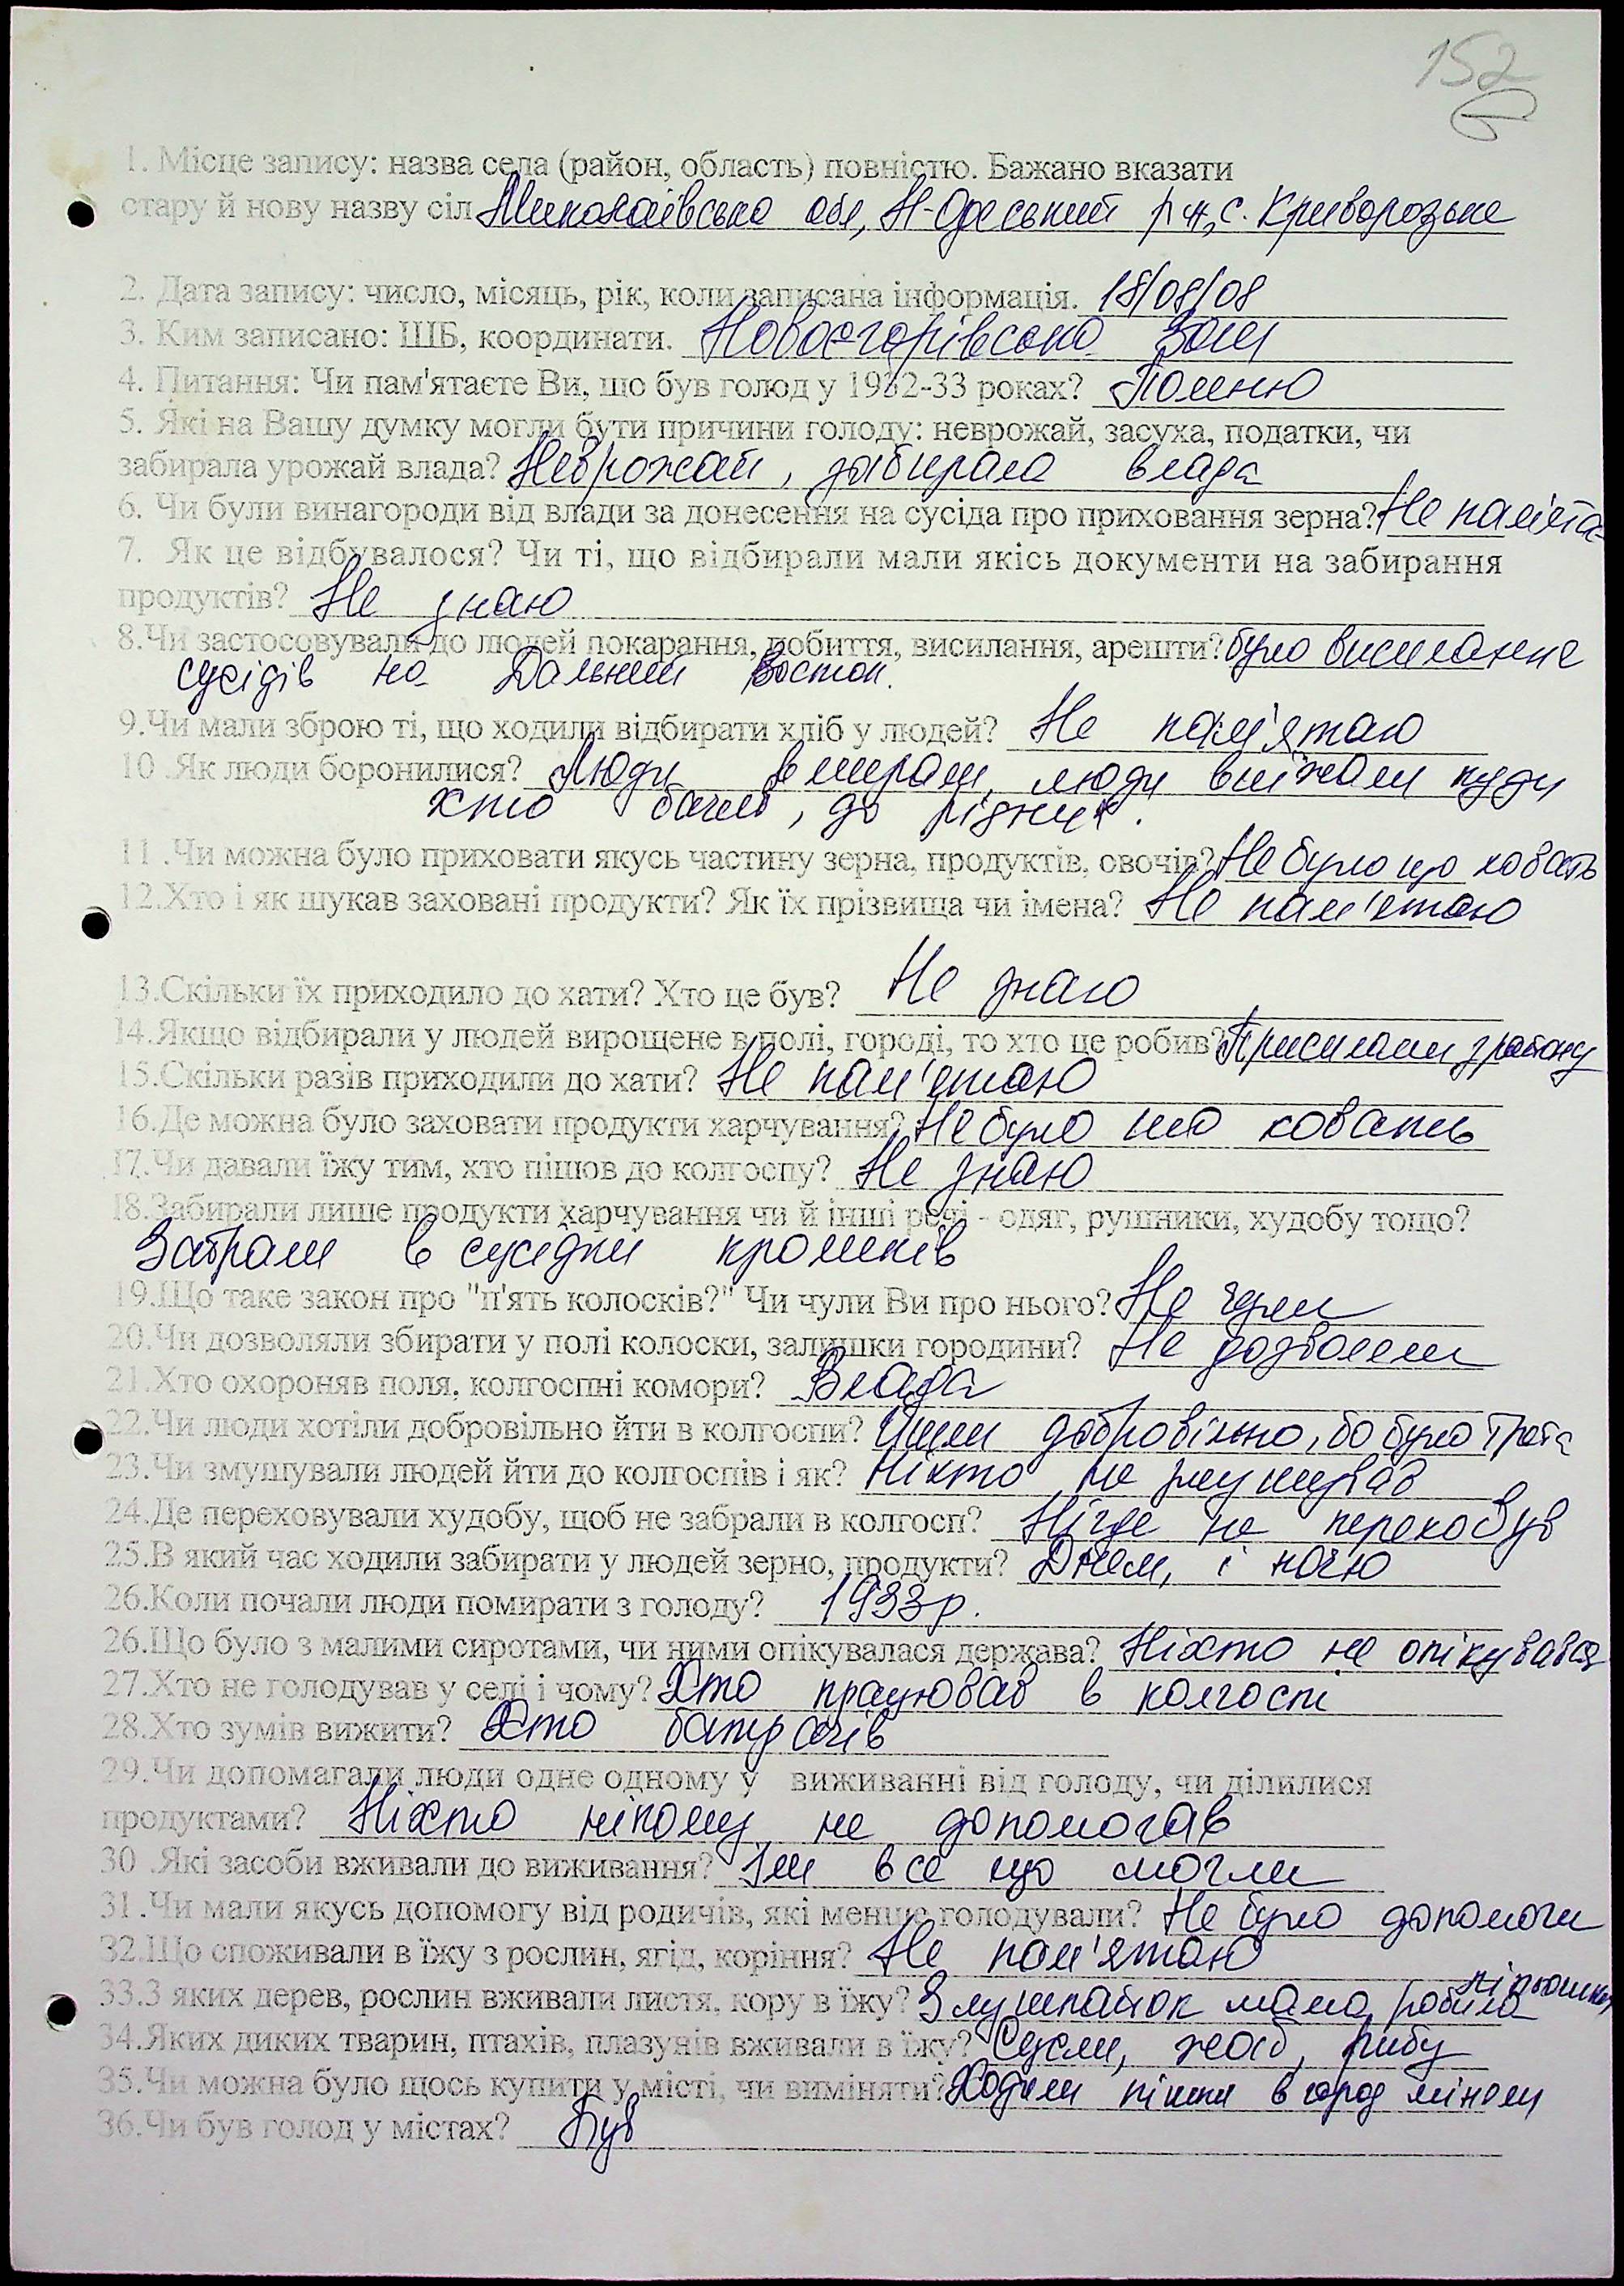 152
1. Місце запису: назва села (район, область) повністю. Бажано вказати
стару й нову назву сіл Миколаївська обл, Н-Одеський р-н, с. Криворозьке
2. Дата запису: число, місяць, рік, коли записана інформація. 18/08/08
3. Ким записано: ШБ, координати. Новоєгорівська Зош
4. Питання: Чи пам'ятаєте Ви, що був голод у 1932-33 роках? Помню
5. Які на Вашу думку могли бути причини голоду: неврожай, засуха, податки, чи
забирала урожай влада? Неврожай, забирала влада
6. Чи були винагороди від влади за донесення на сусіда про приховання зерна? Не памята-
7. Як це відбувалося? Чи ті, що відбирали мали якісь документи на забирання
продуктів? Не знаю
8.Чи застосовували до людей покарання, побиття, висилання, арешти? було висилання
сусідів на Дальний Восток.
9.Чи мали зброю ті, що ходили відбирати хліб у людей? Не пам'ятаю
10 .Як люди боронилися? Люди вмирали, люди виїжали куди
хто бачив, до рідних.
11 .Чи можна було приховати якусь частину зерна, продуктів, овочів? Не було що ховать
12.Хто і як шукав заховані продукти? Як їх прізвища чи імена? Не пам'ятаю
13.Скільки їх приходило до хати? Хто це був? Не знаю
14.Якщо відбирали у людей вирощене в полі, городі, то хто це робив? Присилали з району
15.Скільки разів приходили до хати? Не пам'ятаю
16.Де можна було заховати продукти харчування? Не було шо ховать
17.Чи давали їжу тим, хто пішов до колгоспу? Не знаю
18.Забирали лише продукти харчування чи й інші речі - одяг, рушники, худобу тощо?
Забрали в сусідки кроликів
19.Що таке закон про "п'ять колосків?" Чи чули Ви про нього? Не чули
20.Чи дозволяли збирати у полі колоски, залишки городини? Не дозволяли
21.Хто охороняв поля, колгоспні комори? Влада
22.Чи люди хотіли добровільно йти в колгоспи? Йшли добровільно, бо було треба
23.Чи змушували людей йти до колгоспів і як? Ніхто не змушував
24.Де переховували худобу, щоб не забрали в колгосп? Нігде не переховув
25.В який час ходили забирати у людей зерно, продукти? Днем, і ночю
26.Коли почали люди помирати з голоду? 1933р.
26.Що було з малими сиротами, чи ними опікувалася держава? Ніхто не опікувався
27.Хто не голодував у селі і чому? Хто працював в колгоспі
28.Хто зумів вижити? Хто батрачів
29.Чи допомагали люди одне одному у виживанні від голоду, чи ділилися
продуктами? Ніхто нікому не допомогав
30 .Які засоби вживали до виживання? Їли все що могли
31 .Чи мали якусь допомогу від родичів, які менше голодували? Не було допомоги
32.Що споживали в їжу з рослин, ягід, коріння? Не пам'ятаю
33.З яких дерев, рослин вживали листя, кору в їжу? З лушпайок мама робила
34.Яких диких тварин, птахів, плазунів вживали в їжу? Сусли, жаб, рибу
35.Чи можна було щось купити у місті, чи виміняти? Ходили пішки в город міняли
36.Чи був голод у містах? Був